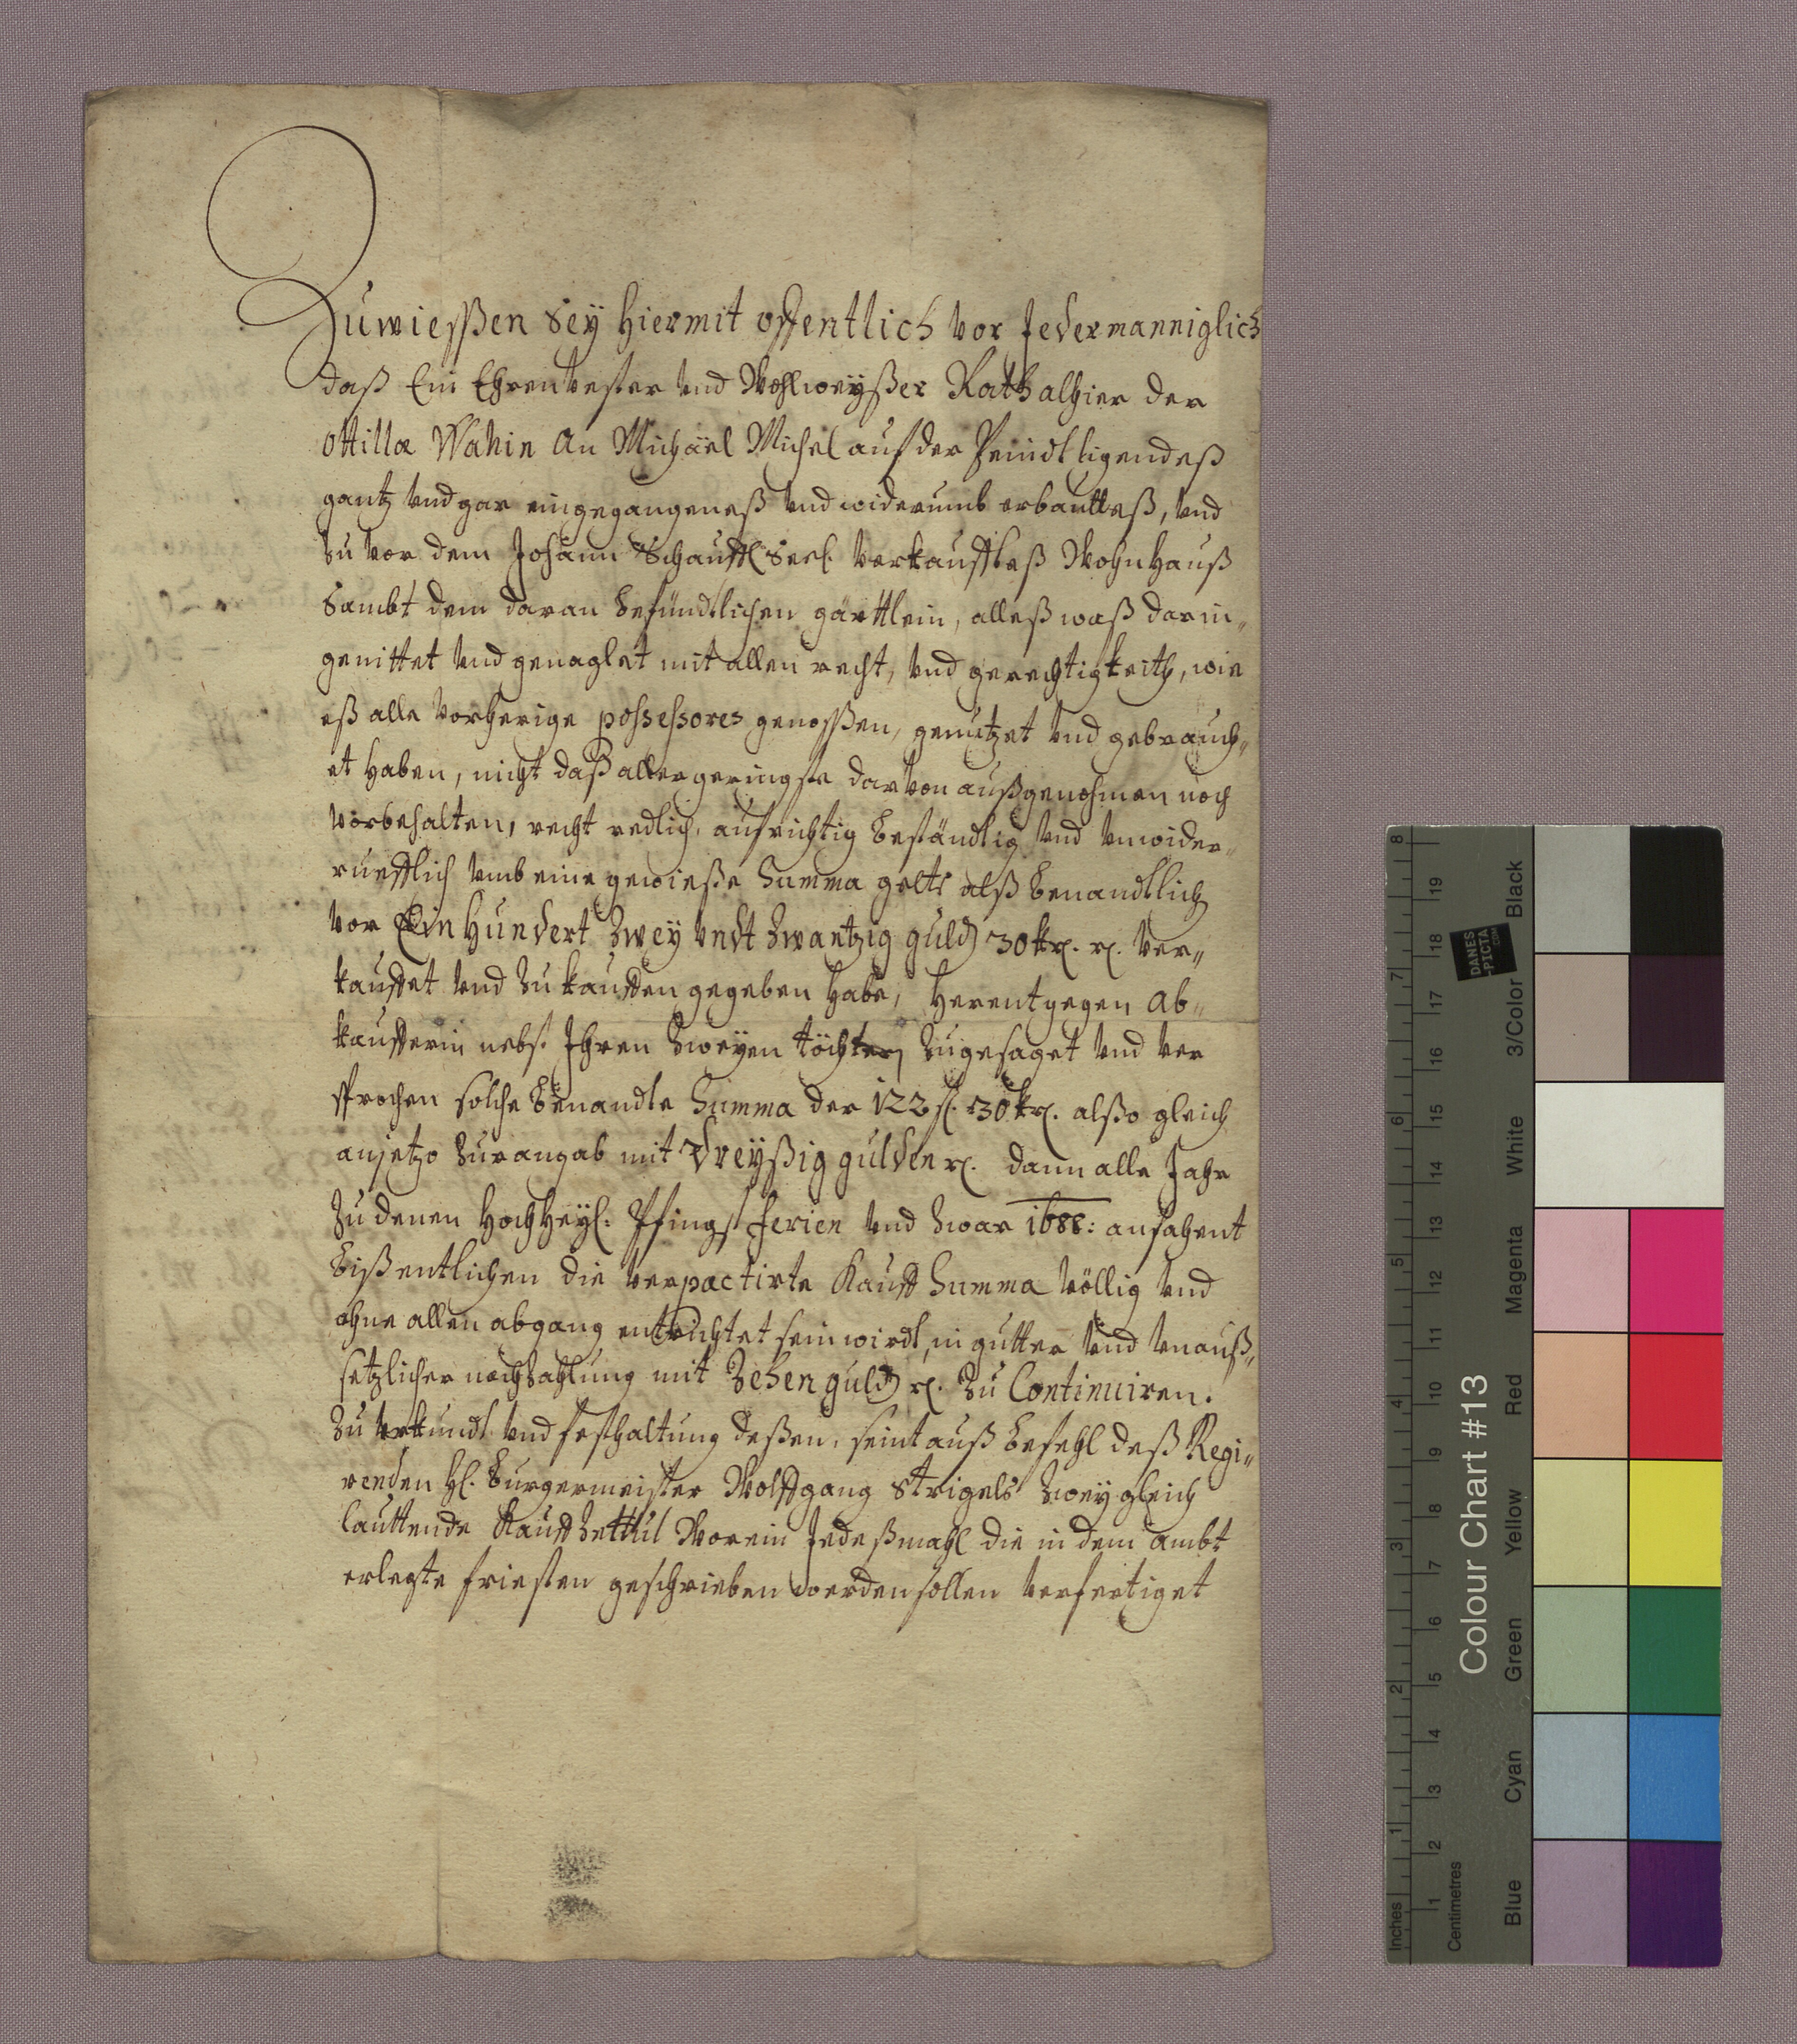 Zuwießen Sey hiermit offentlich vor Jedermanniglich
daß Ein Ehrenvester und Wohlweyßer Rath alhier der
Ottillæ Wahin An Michäel Michel auf der Peindt ligendeß
gantz und gar eingegangeneß und widerumb erbautteß, und
zu vor dem Johann Schauffl Seel. verkauffteß Wohnhauß
Sambt dem daran befündtlichen gärttlein, alleß waß darin„
genittet und genaglet mit allen recht, und gerechtigkeith, wie
eß alle vorherige possessores genoßen, genutzet und gebrauch„
et haben, nicht daß allergeringste darvon außgenohmen noch
vorbehalten, recht redlich, aufrichtig beständig und unwider„
ruefflich umb eine gewieße Summa gelts alß benandtlich
vor Ein Hundert Zwey undt Zwantzig guld 30 kr. r. ver„
kauffet und zu kauffen gegeben habe, herentgegen Ab„
kaufferin nebst Ihren Zweyen töchtern zugesaget und ver
sprochen solche benandte Summa der 122 fl. 30 kr. alßo gleich
anjetzo zur angab mit dreyßig gulden r. dann alle Jahr
zu denen HochHeyl: Pfingst ferien und zwar 1688: anfahent
bißentlichen die verpactirte Kauff Summa völlig und
ohne allen abgang entrichtet sein wirdt, in gutter und unauß„
setzlicher nachzahlung mit Zehen guld r. zu Continuiren.
Zu Urkundt und festhaltung deßen, seint auß befehl deß Regi„
renden H. Burgermeister Wolffgang Strigels zwey gleich
lauttende Kauff Zettul Worein Jedeßmahl die in dem ambt
erlegte friesten geschrieben werden sollen verfertiget
Inches
1 2 3 4 5 6 7 8
Centimetres
1 2 3 4 5 6 7 8 9 10 11 12 13 14 15 16 17 18 19
Colour Chart #13
DANES
-PICTA
.COM
Blue Cyan Green Yellow Red Magenta White 3/Color Black